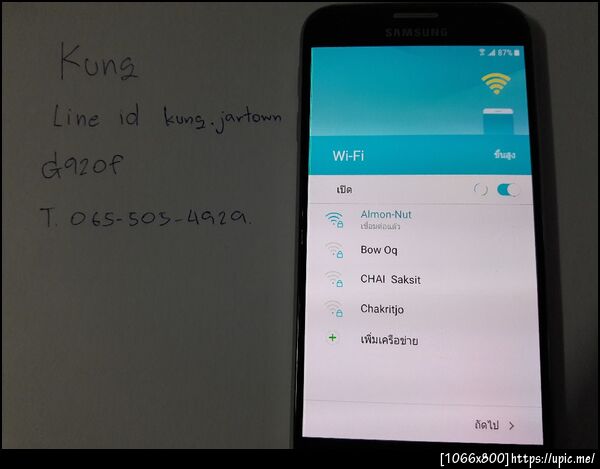 Kung
Line id kung.jartown
G920f
T. 065-505-4929.
SAMSUNG
87%
Wi-Fi ขั้นสูง
เปิด
Almon-Nut
เชื่อมต่อแล้ว
Bow Oq
CHAI Saksit
Chakritjo
เพิ่มเครือข่าย
ถัดไป >
[1066x800]https://upic.me/